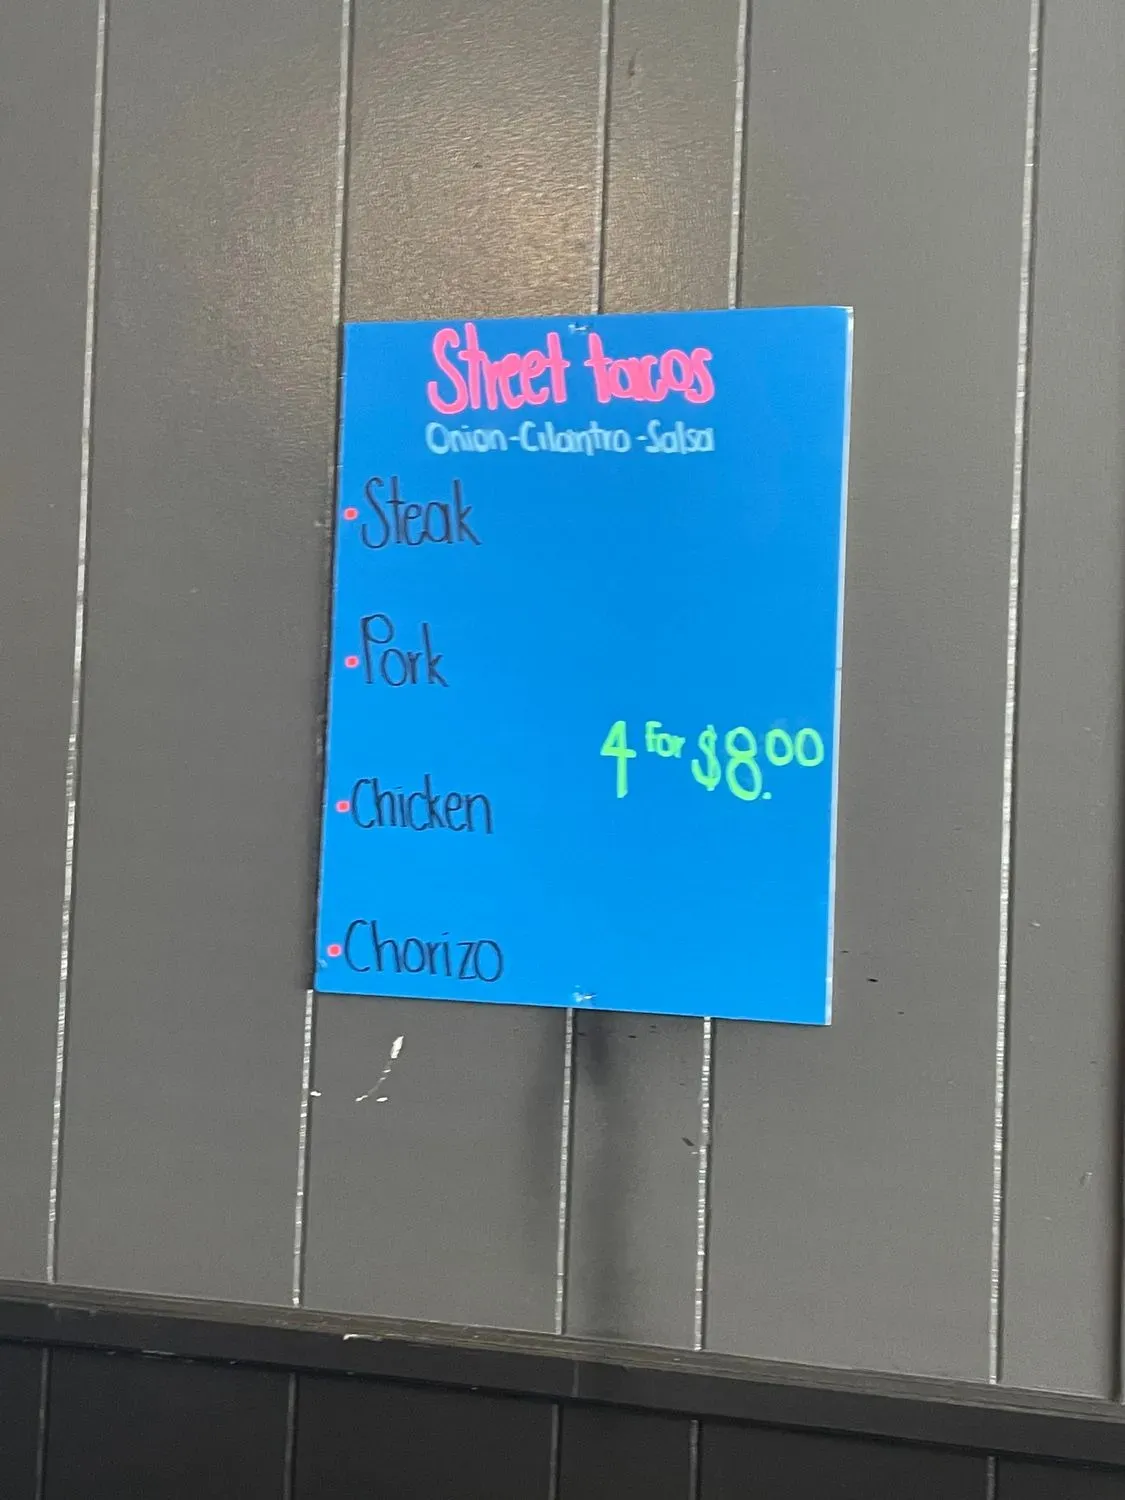 Street tacos
Onion-Cilantro-Salsa
•Steak
•Pork
4 For $8.00
•Chicken
•Chorizo